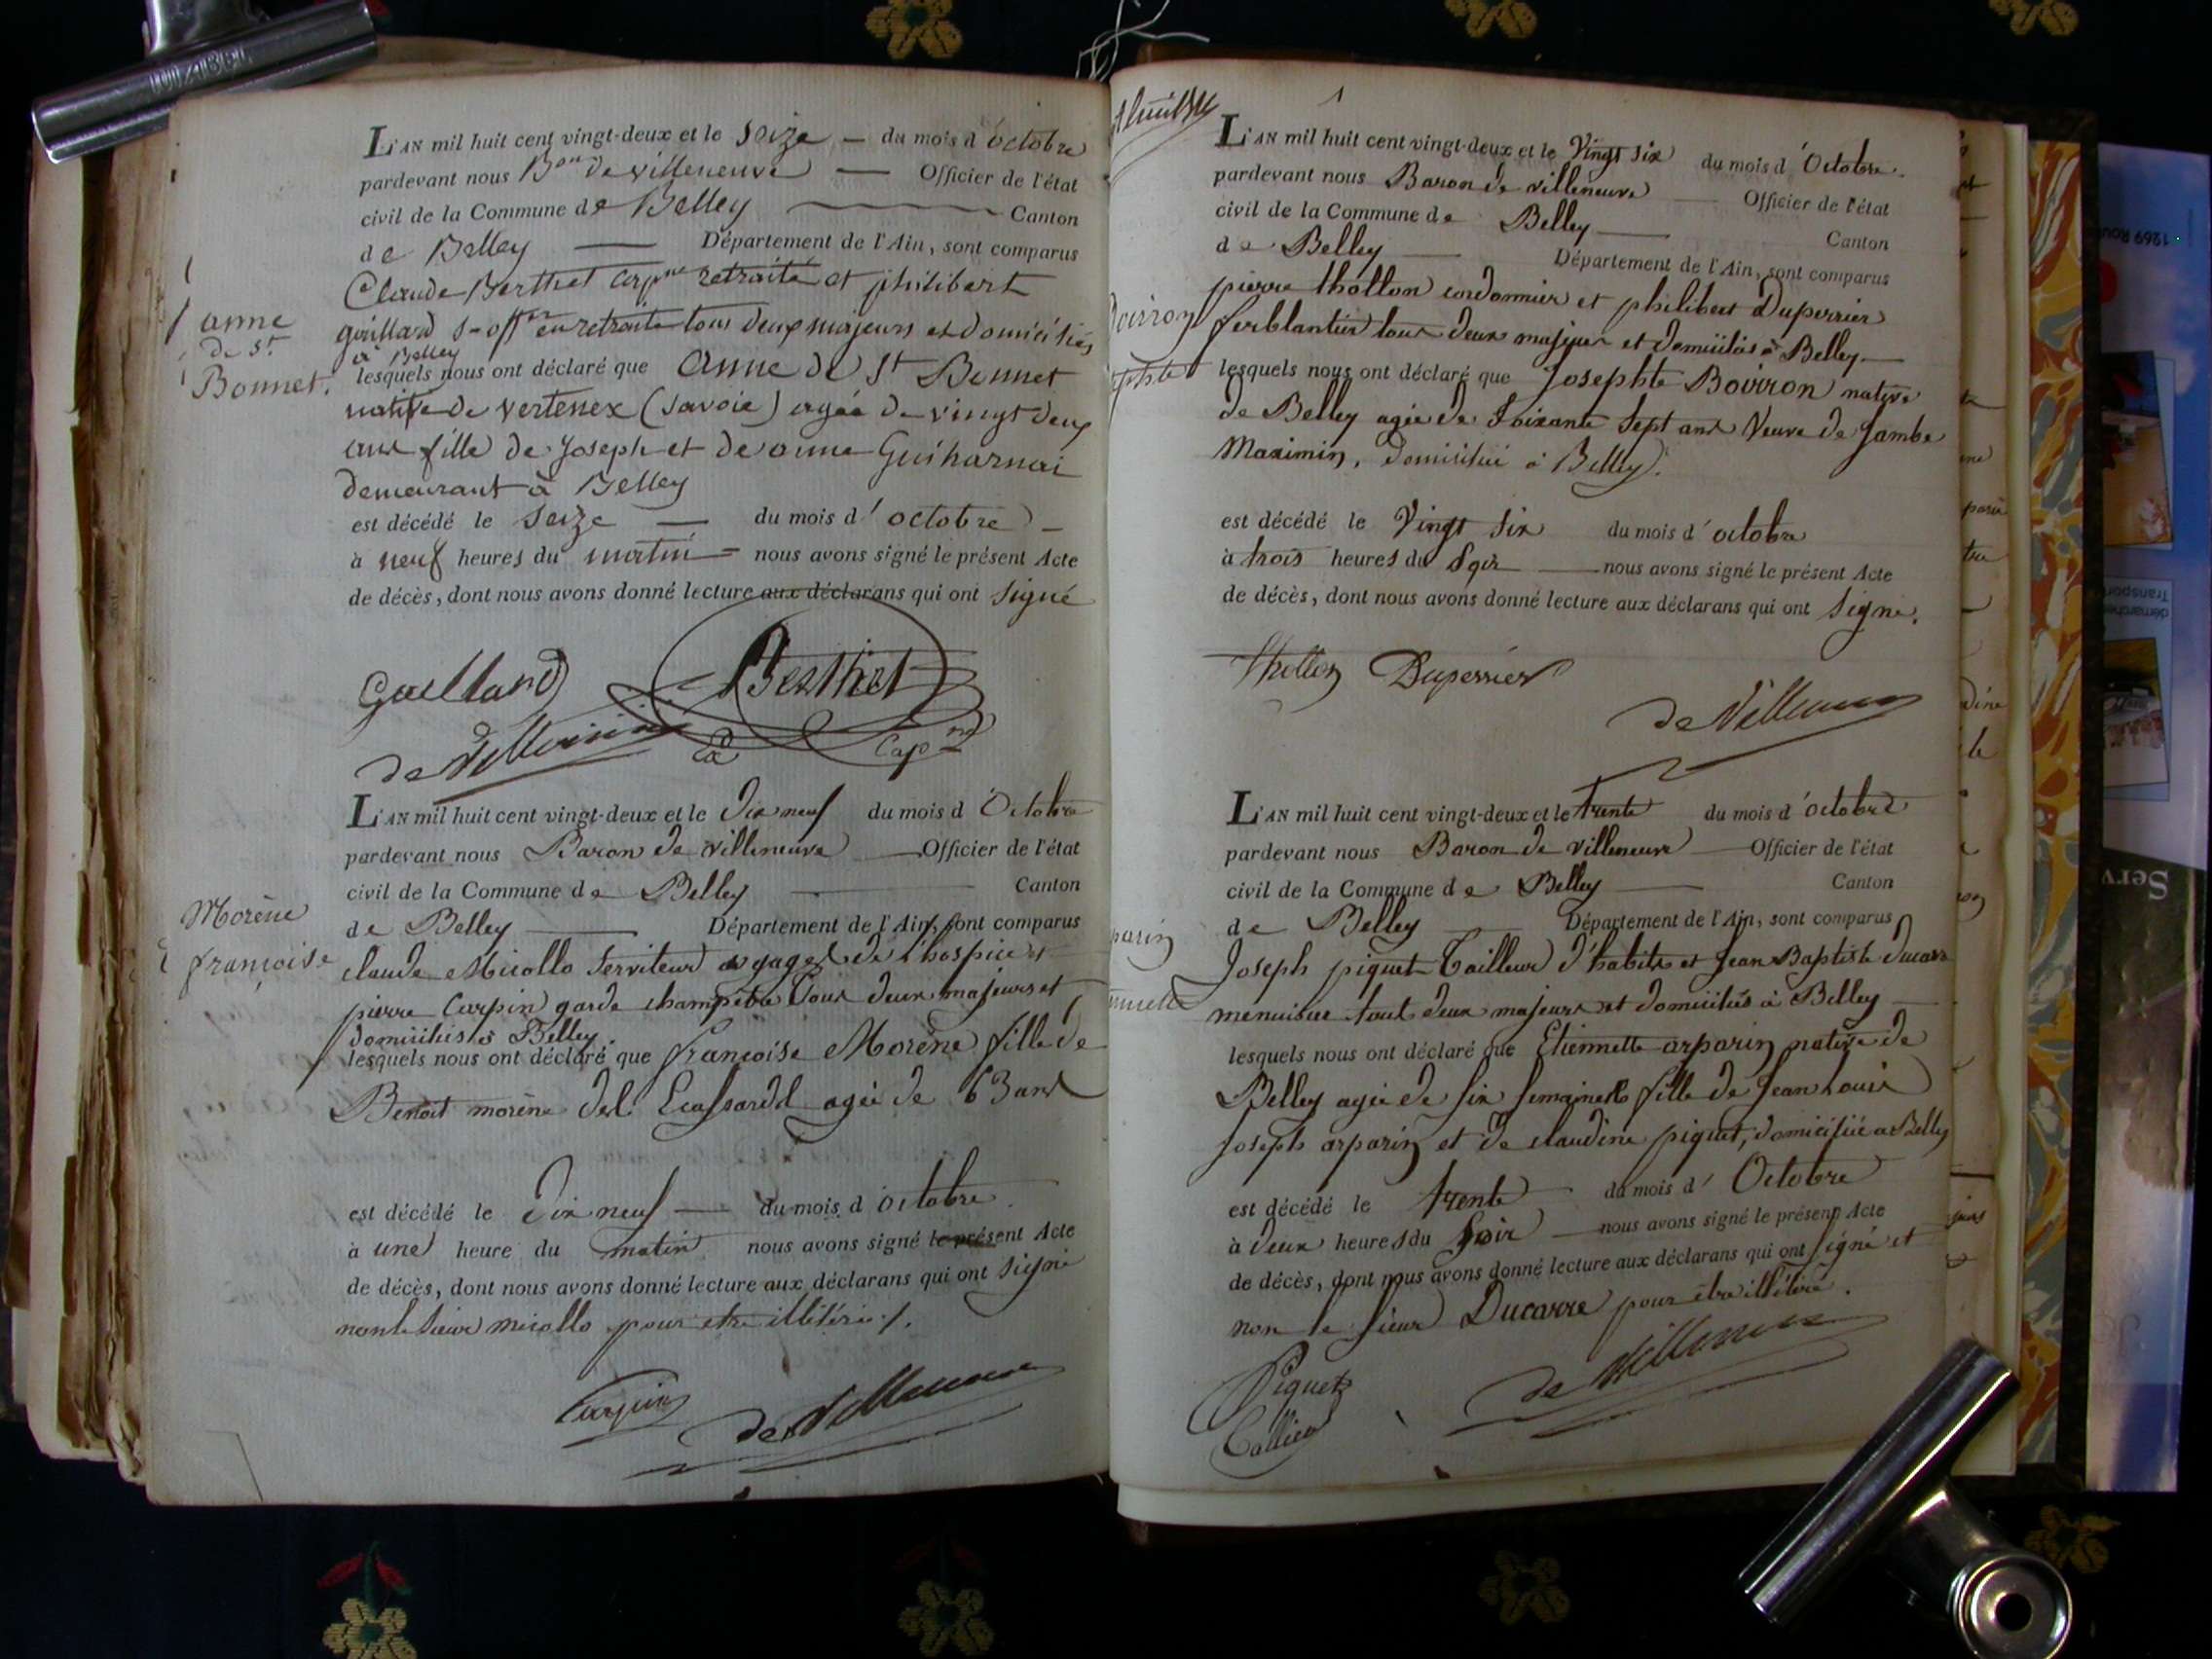 L'AN mil huit cent vingt-deux et le Seize — du mois d'octobre
pardevant nous Bon de villeneuve — Officier de l'état
civil de la Commune de Belley — Canton
de Belley — Département de l'Ain, sont comparus
Claude Berthet retraité et philibert
gaillard s-offer en retraite tous deux majeurs et domiciliés
à Belley
lesquels nous ont déclaré que anne de St Bonnet
native de vertenex (Savoie) agée de vingt deux
ans fille de Joseph et de anne Guiharnai
demeurant à Belley
est décédé le seize — du mois d'octobre —
à neuf heures du matin = nous avons signé le présent Acte
de décès, dont nous avons donné lecture aux déclarans qui ont signé
anne
de St
Bonnet.
Gaillard Berthet
de Villeneuve Capne
L'AN mil huit cent vingt-deux et le Dix neuf du mois d'Octobre
pardevant nous Baron de villeneuve — Officier de l'état
civil de la Commune de Belley — Canton
de Belley — Département de l'Ain, sont comparus
claude Micollo Serviteur à gages de l'hospice et
pierre Curpin garde champêtre tous deux majeurs et
domiciliés à Belley.
lesquels nous ont déclaré que françoise Morène fille de
Benoit morène del agée de 63 ans
est décédé le Dix neuf — du mois d'octobre
à une heure du matin nous avons signé le présent Acte
de décès, dont nous avons donné lecture aux déclarans qui ont signé
non le sieur micollo pour etre illitéré
Morène
françoise
Curpin de Villeneuve
L'AN mil huit cent vingt-deux et le Vingt six du mois d'Octobre.
pardevant nous Baron de villeneuve — Officier de l'état
civil de la Commune de Belley — Canton
de Belley — Département de l'Ain, sont comparus
pierre thollon cordonnier et philibert Duperrier
ferblantier tous deux majeurs et domiciliés à Belley —
lesquels nous ont déclaré que Josephte Boirron native
de Belley agée de Soixante Sept ans Veuve de Jambe
Maximin, domiciliée à Belley.
est décédé le Vingt Six du mois d'octobre
à trois heures du Soir — nous avons signé le présent Acte
de décès, dont nous avons donné lecture aux déclarans qui ont signé.
thollon Duperrier
de Villeneuve
L'AN mil huit cent vingt-deux et le trente du mois d'octobre
pardevant nous Baron de villeneuve — Officier de l'état
civil de la Commune de Belley — Canton
de Belley — Département de l'Ain, sont comparus
Joseph piquet Tailleur d'habits et Jean Baptiste ducarre
menuisier tout deux majeurs et domiciliés à Belley —
lesquels nous ont déclaré que Etiennette arparin native de
Belley agée de six semaines fille de Jean Louis
Joseph arparin et de claudine piquet, domiciliée a Belley
est décédé le trente du mois d'Octobre
à deux heures du Soir — nous avons signé le présent Acte
de décès, dont nous avons donné lecture aux déclarans qui ont signé et
non le sieur Ducarre pour être illitéré.
Piquet de Villeneuve